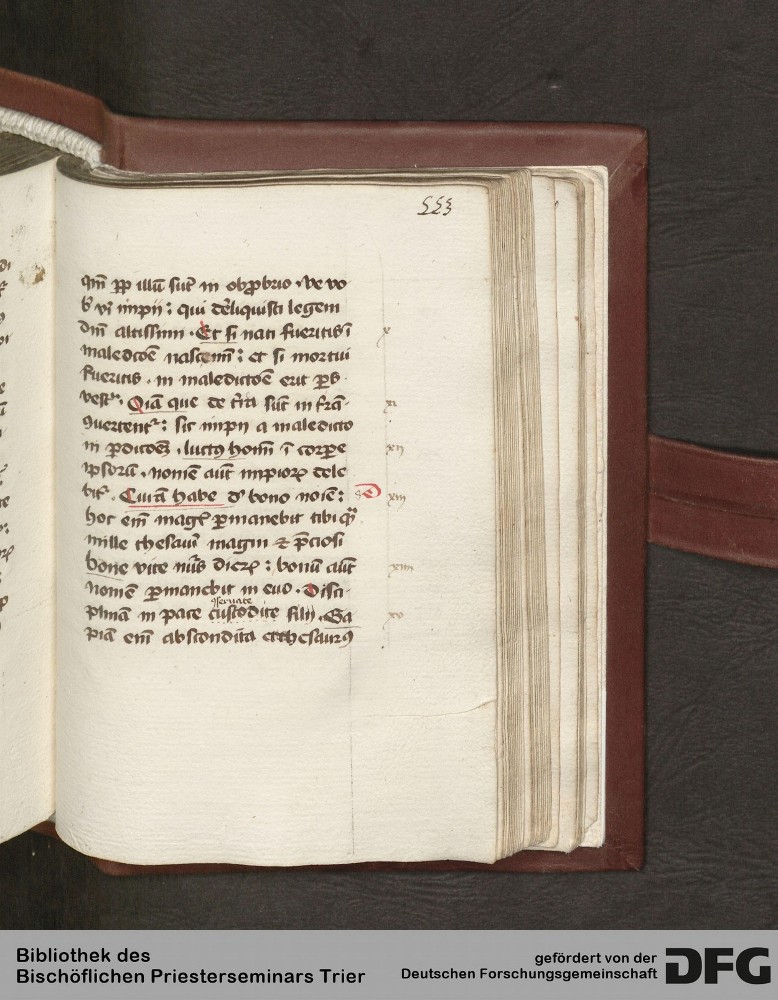 553
qm̄ ꝓp illū sūt in obꝓbrio · ve vo
b̄ viri impii : qui dēliquisti legem
dn̄i altissimi · Et si nati fueritis ī
x
maledcōe nascem̄ : et si mortui
fueritis · in maledictōe erit ꝑs
vestᵃ · Oīa que de t̄ra sūt in trā
xi
ꝯuertentʳ : sic impii a maledicto
in ꝑdicōeꝫ · luctꝰ hoīm ī corꝑe
xii
ipsorū · nomē aūt impioꝝ dele
bitʳ · Curā habe d̓ bono noīe :
xiii
hoc em̄ magꝭ ꝑmanebit tibi qᷓ
mille thesauri magni ⁊ p̄ciosi
bone vite nūs dieꝝ : bonū aūt
xiiii
nomē ꝑmanebit in euo · Disci
ꝯseruate
plinā in pace custodite filii · Sa
xv
piā em̄ abscondita et thesaurꝰ
Bibliothek des
Bischöflichen Priesterseminars Trier
gefördert von der
Deutschen Forschungsgemeinschaft
DFG